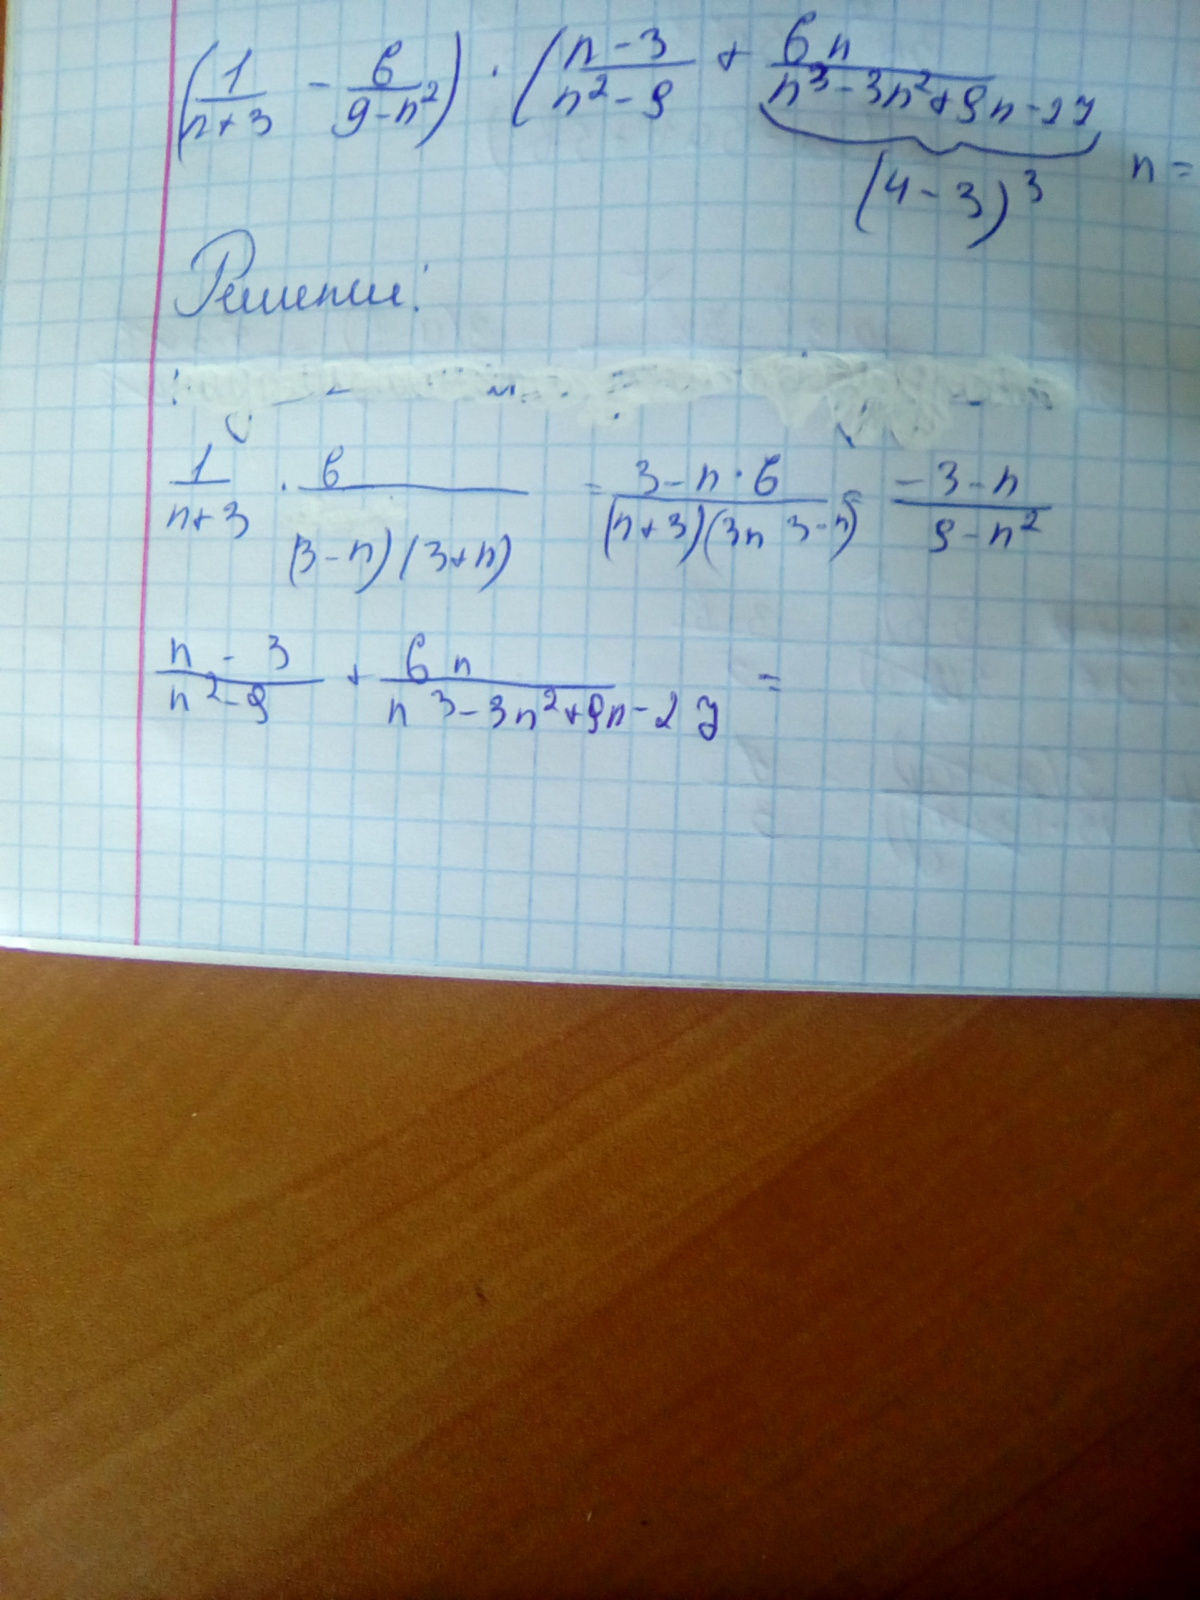 (1/(n+3) - 6/(9-n²)) · ((n-3)/(n²-9) + 6n/(n³-3n²+9n-27)
(4-3)³ n=
Решение:
1/(n+3) · 6/((3-n)(3+n)) = (3-n·6)/((n+3)(3n 3-n)) = (-3-n)/(9-n²)
(n-3)/(n²-9) + 6n/(n³-3n²+9n-27) =